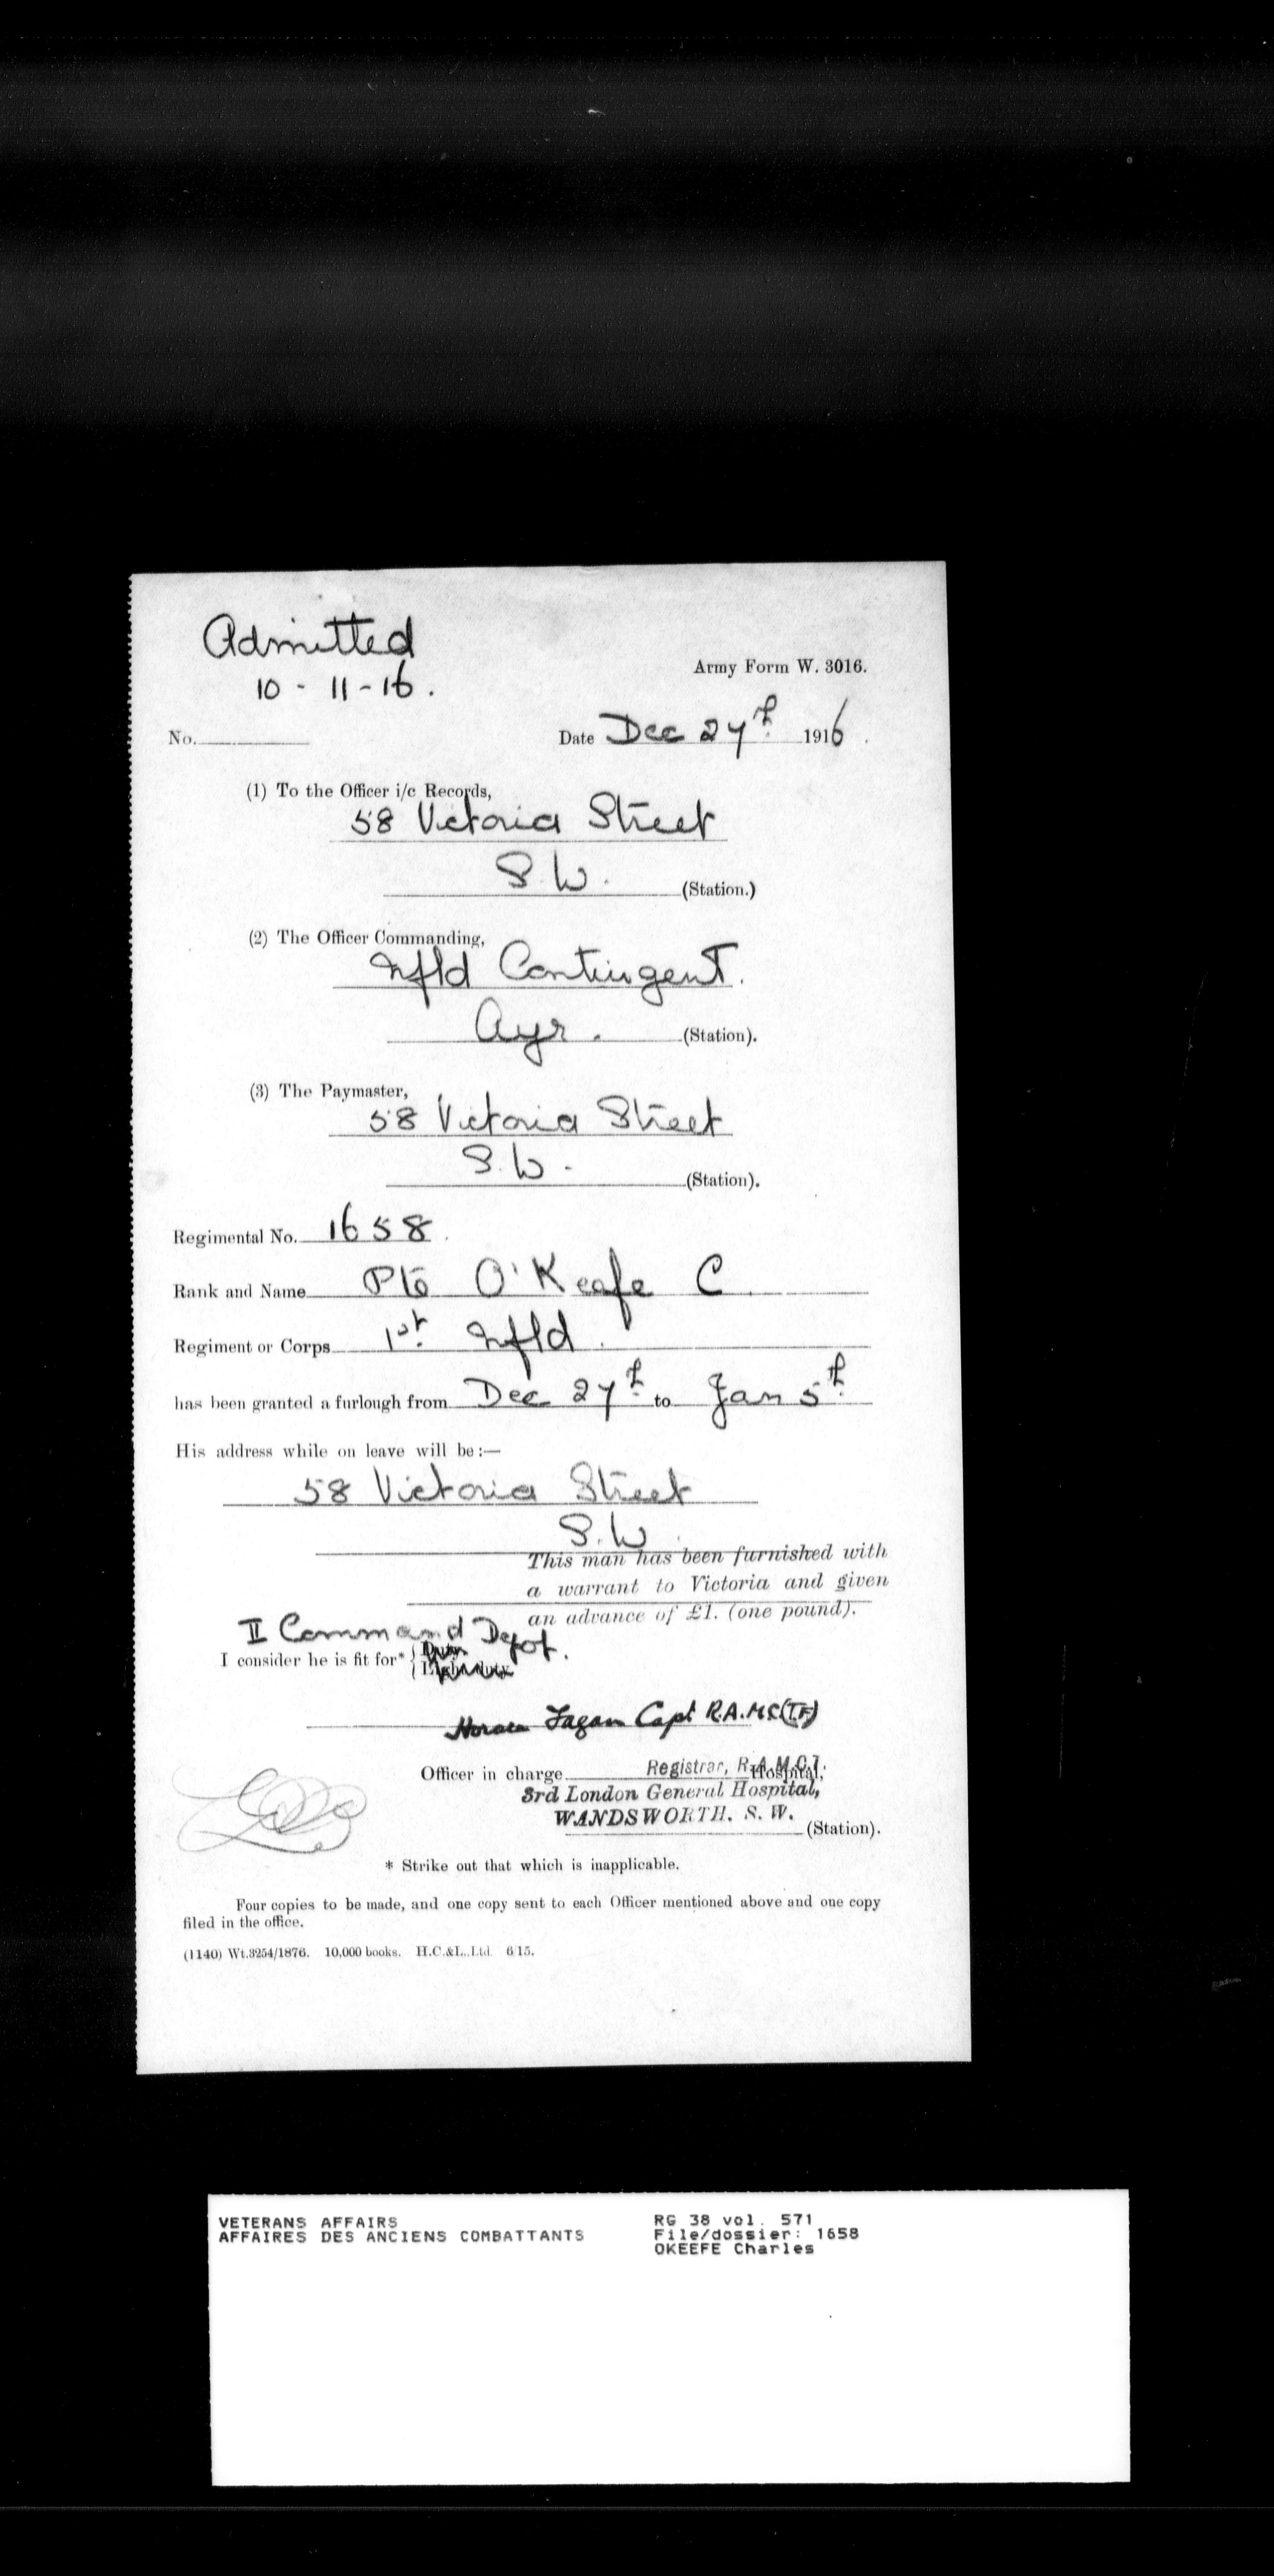 Admitted
10 - 11 - 16.
Army Form W. 3016.
No.
Date Dec 27th 1916.
(1) To the Officer i/c Records,
58 Victoria Street
S.W. (Station.)
(2) The Officer Commanding,
Nfld Contingent.
Ayr. (Station).
(3) The Paymaster,
58 Victoria Street
S.W. (Station).
Regimental No. 1658.
Rank and Name Pte O'Keefe C
Regiment or Corps 1st Nfld.
has been granted a furlough from Dec 27th to Jan 5th
His address while on leave will be:—
58 Victoria Street
S.W.
This man has been furnished with
a warrant to Victoria and given
an advance of £1. (one pound).
II Command Depot.
I consider he is fit for* { Duty
{ Light duty
Horace Fagan Capt R.A.M.C.(T.F)
Officer in charge Registrar, R.A.M.C.T. Hospital,
3rd London General Hospital,
WANDSWORTH. S. W. (Station).
* Strike out that which is inapplicable.
Four copies to be made, and one copy sent to each Officer mentioned above and one copy
filed in the office.
(1140) Wt.3254/1876. 10,000 books. H.C.&L. Ltd. 6 15.
VETERANS AFFAIRS RG 38 vol. 571
AFFAIRES DES ANCIENS COMBATTANTS File/dossier: 1658
OKEEFE Charles